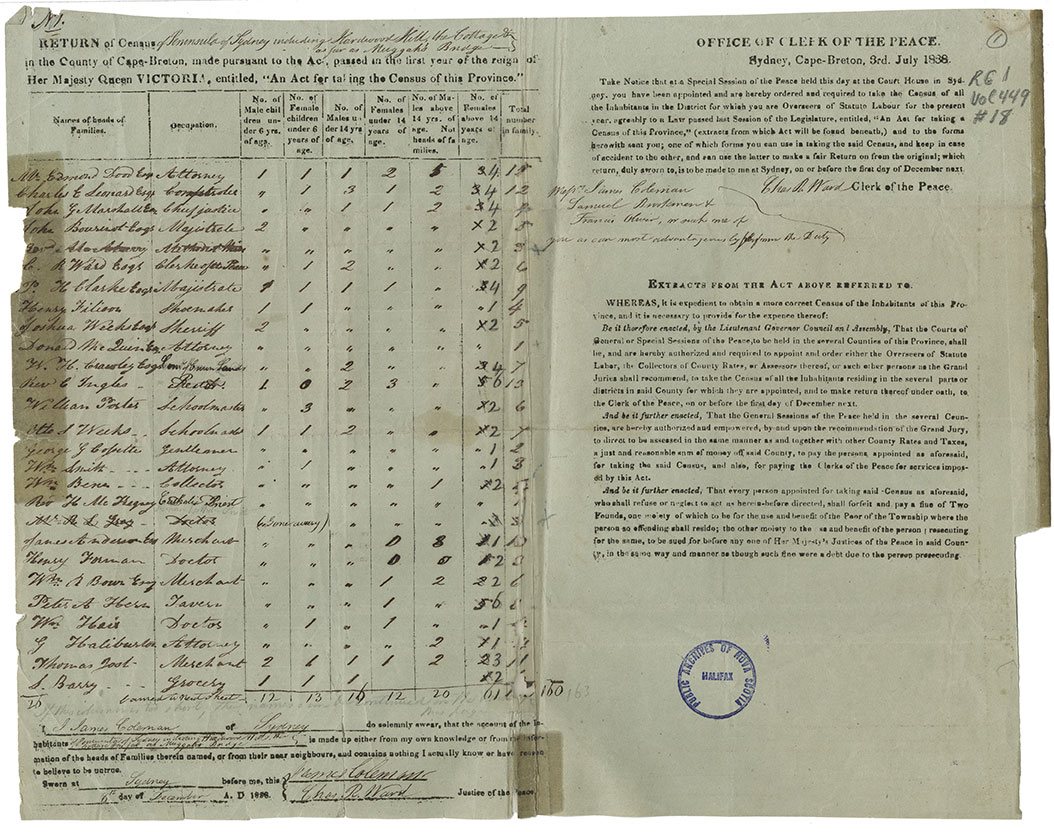 No. 1.
RETURN of Census of Peninsula of Sydney including Hardwood Hill, the Cottage &
as far as Muggah's Bridge
in the County of Cape-Breton, made pursuant to the Act, passed in the first year of the reign of
Her Majesty Queen VICTORIA, entitled, "An Act for taking the Census of this Province."
Names of heads of Families.
Occupation.
No. of Male children under 6 yrs. of age.
No. of Female children under 6 years of age.
No. of Males under 14 yrs of age.
No. of Females under 14 years of age.
No. of Males above 14 yrs. of age. Not heads of families.
No. of Females above 14 years of age.
Total number in family.
Edmond Dodd Esq Attorney 1 1 1 2 5 4 15
Charles E Leonard Esq Comptroller " 1 3 1 2 4 12
John G Marshall Esq Chf justice " " 1 1 2 4
John Bourinot Esqr Majistrate 2 " " " " 2 5
" " " " " 2 3
C. R Ward Esqr Clerke of the Peace " 1 2 " " 2 6
H Clarke Esqr Majistrate 1 1 1 1 " 4 9
Henry Shoemaker 1 1 " " " 1 4
Joshua Weeks Esqr Sheriff 2 " " " " 2 5
Donald Attorney " " " " " " 1
W. H. Crawley Esqr " " 2 " " 4 7
Rev C Ingles Rector 1 0 2 3 " 6 13
William Porter Schoolmaster " 3 " " " 2 6
Otto S Weeks Schoolmaster 1 1 2 " " 2 7
George G Gentleman " " " " " 1 2
Wm Smith Attorney " 1 " " " 1 3
Wm Collector " " " " 1 2 5
Rev H Catholic Priest " " " " " "
Doctor
James Anderson Esq Merchant " " " 0 8 1
Henry Forman Doctor " " " 0 0 2 3
Wm R Bown Esq Merchant " " " 1 2 2 6
Peter A Hern Tavern " " " 1 " 6
Wm Hair Doctor " 1 " 1 " 1
G Haliburton Attorney " " " " 2 1
Thomas Jost Merchant 2 6 1 1 2 3 11
S. Barry Grocery 1 1 1 " " 2
26 carried to next sheet 12 13 16 12 20 61 160 163
I James Coleman of Sydney do solemnly swear, that the account of the Inhabitants
is made up either from my own knowledge or from the information
of the heads of Families therein named, or from their near neighbours, and contains nothing I actually know or have reason
to believe to be untrue.
Sworn at Sydney before me, this James Coleman
day of December A. D 1838. Chas R. Ward Justice of the Peace.
OFFICE OF CLERK OF THE PEACE.
Sydney, Cape-Breton, 3rd. July 1838.
1
RG 1
Vol 449
#18
Take Notice that at a Special Session of the Peace held this day at the Court House in Sydney,
you have been appointed and are hereby ordered and required to take the Census of all
the Inhabitants in the District for which you are Overseers of Statute Labour for the present
year, agreeably to a Law passed last Session of the Legislature, entitled, "An Act for taking a
Census of this Province," (extracts from which Act will be found beneath,) and to the forms
herewith sent you; one of which forms you can use in taking the said Census, and keep in case
of accident to the other, and can use the latter to make a fair Return on from the original; which
return, duly sworn to, is to be made to me at Sydney, on or before the first day of December next
Chas R. Ward Clerk of the Peace.
Messrs. James Coleman
Samuel &
Francis Oliver, or such one of
you as can most advantageously perform the Duty
EXTRACTS FROM THE ACT ABOVE REFERRED TO.
WHEREAS, it is expedient to obtain a more correct Census of the Inhabitants of this Province,
and it is necessary to provide for the expence thereof:
Be it therefore enacted, by the Lieutenant Governor Council and Assembly, That the Courts of
General or Special Sessions of the Peace, to be held in the several Counties of this Province, shall
be, and are hereby authorized and required to appoint and order either the Overseers of Statute
Labor, the Collectors of County Rates, or Assessors thereof, or such other persons as the Grand
Juries shall recommend, to take the Census of all the Inhabitants residing in the several parts or
districts in said County for which they are appointed, and to make return thereof under oath, to
the Clerk of the Peace, on or before the first day of December next.
And be it further enacted, That the General Sessions of the Peace held in the several Counties,
are hereby authorized and empowered, by and upon the recommendation of the Grand Jury,
to direct to be assessed in the same manner as and together with other County Rates and Taxes,
a just and reasonable sum of money off said County, to pay the persons, appointed as aforesaid,
for taking the said Census, and also, for paying the Clerks of the Peace for services imposed
by this Act.
And be it further enacted, That every person appointed for taking said Census as aforesaid,
who shall refuse or neglect to act as herein-before directed, shall forfeit and pay a fine of Two
Pounds, one moiety of which to be for the use and benefit of the Poor of the Township where the
person so offending shall reside; the other moiety to the use and benefit of the person prosecuting
for the same, to be sued for before any one of Her Majesty's Justices of the Peace in said County,
in the same way and manner as though such fine were a debt due to the person prosecuting.
PUBLIC ARCHIVES OF NOVA SCOTIA
HALIFAX